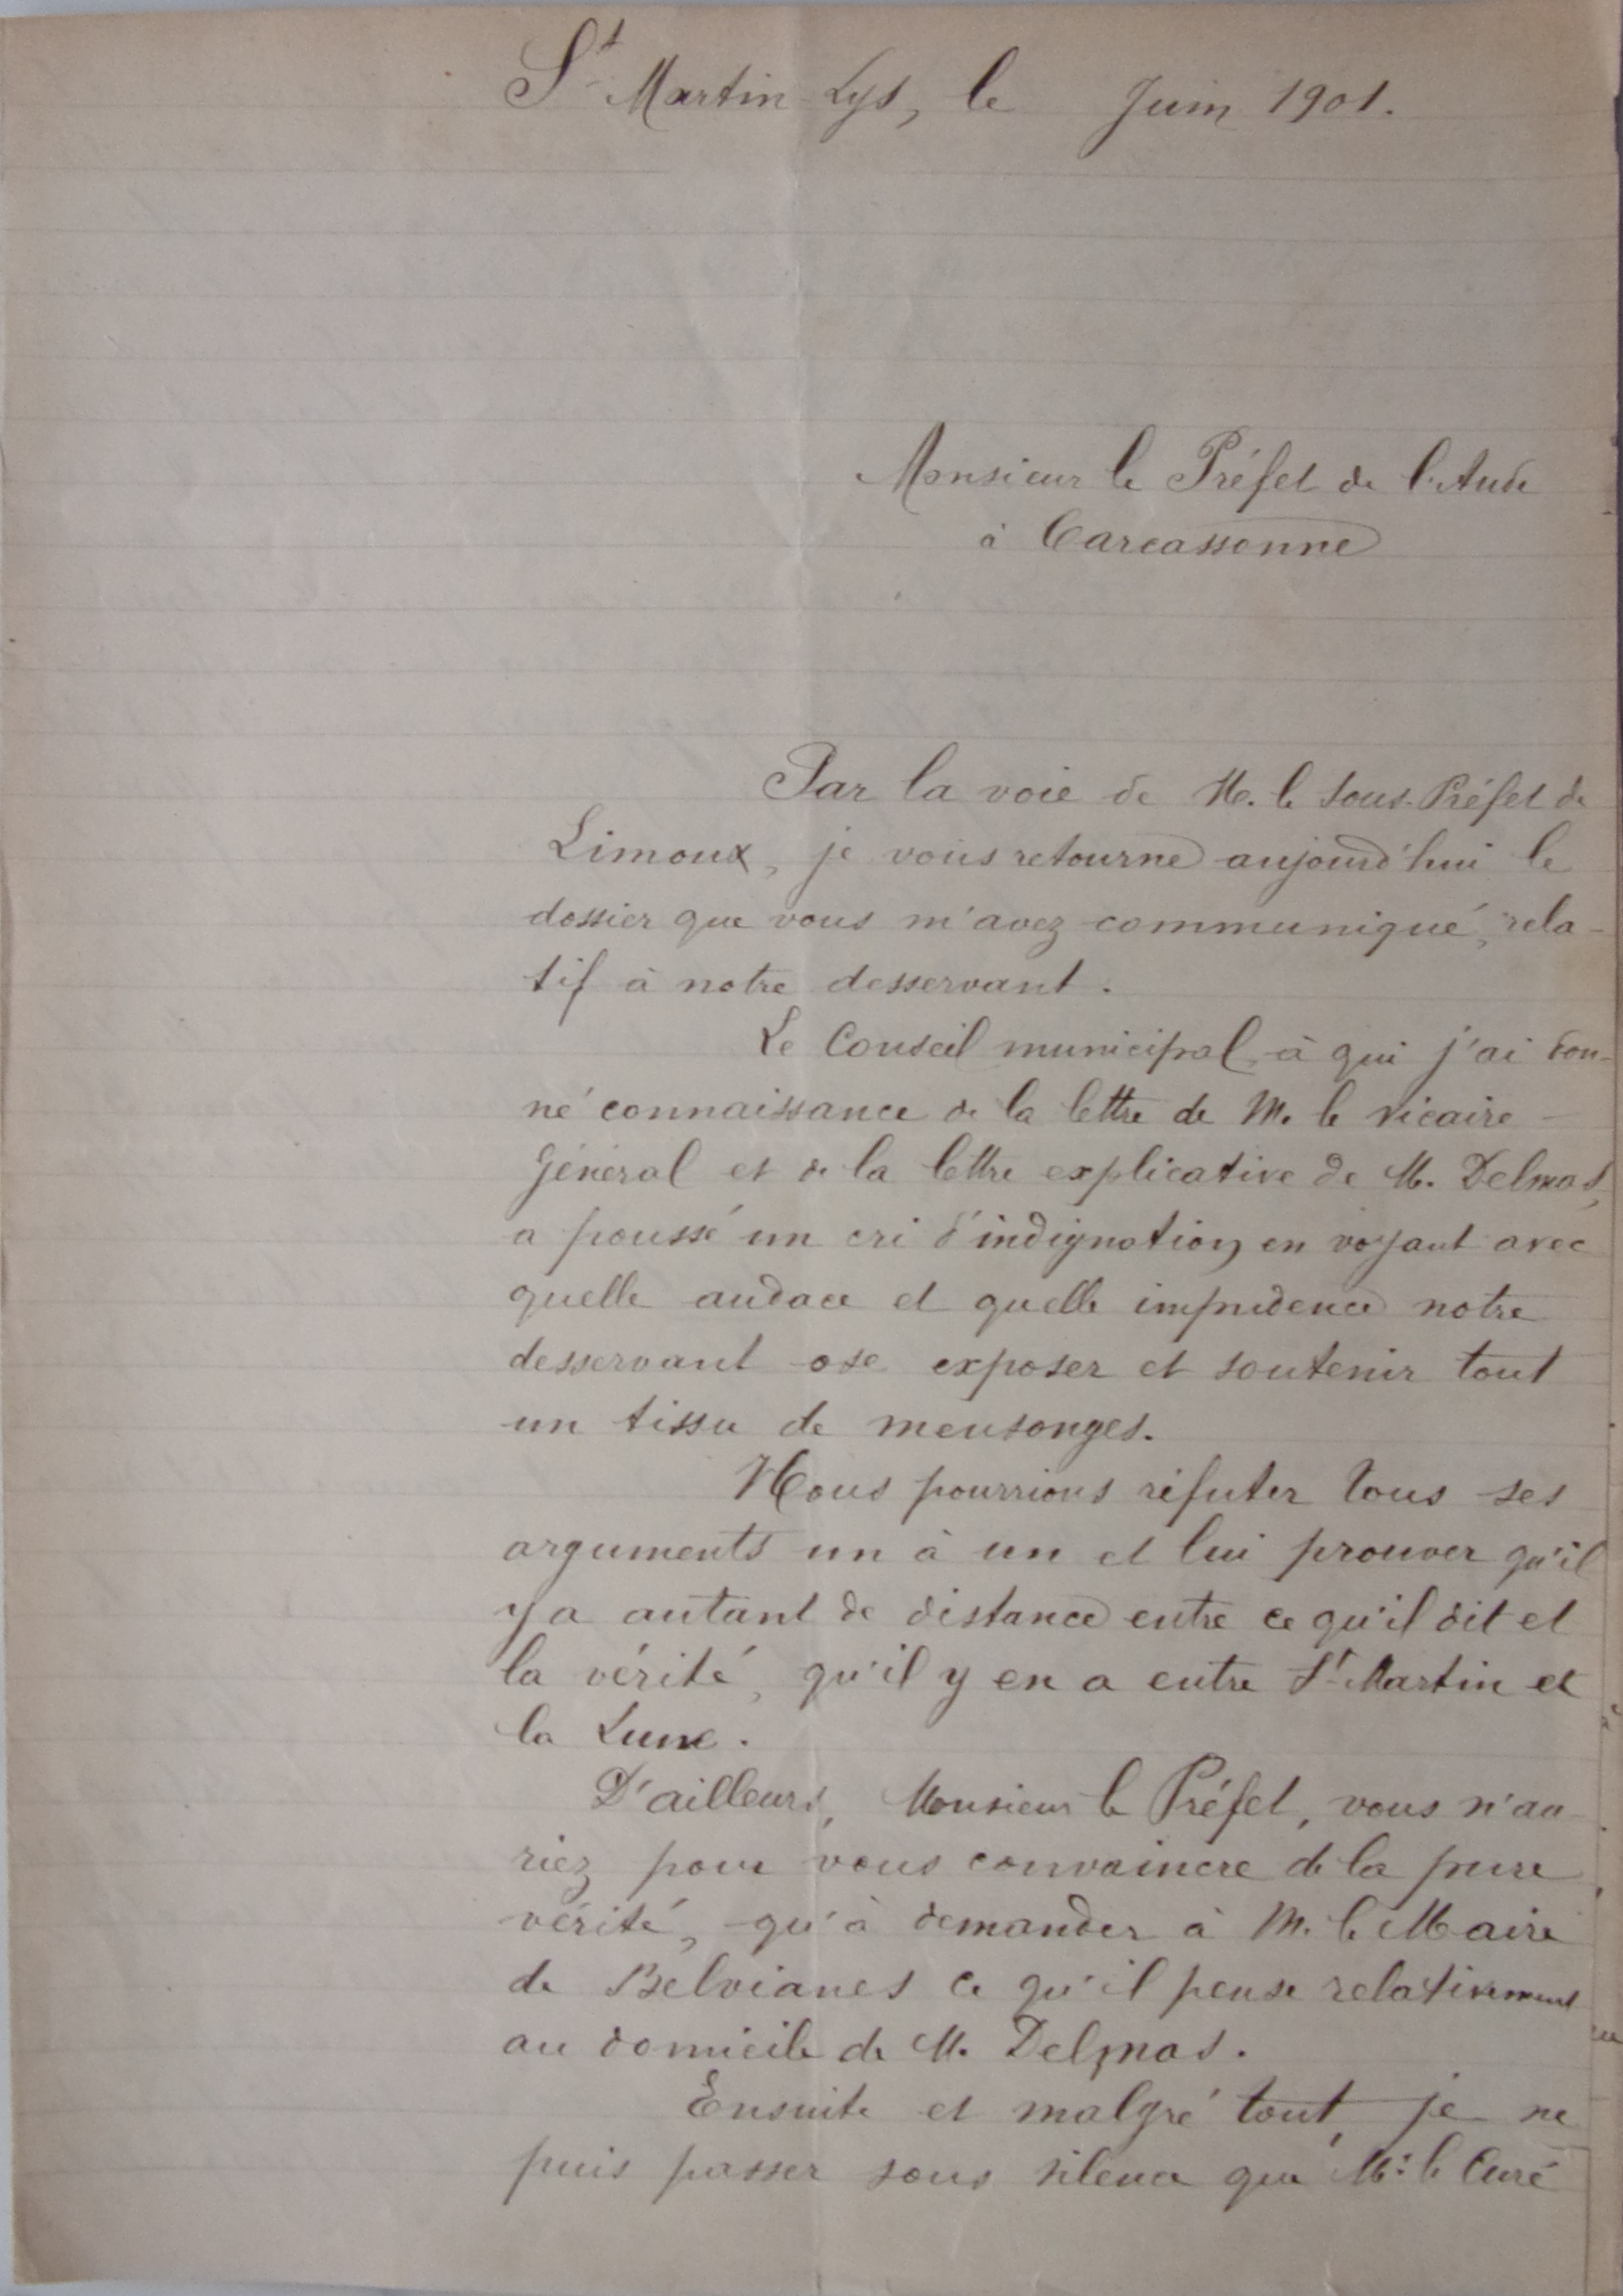 St Martin Lys, le Juin 1901.
Monsieur le Préfet de l'Aude
à Carcassonne
Par la voie de M. le Sous-Préfet de
Limoux, je vous retourne aujourd'hui le
dossier que vous m'avez communiqué, rela-
tif à notre desservant.
Le Conseil municipal à qui j'ai don-
né connaissance de la lettre de M. le Vicaire-
Général et de la lettre explicative de M. Delmas,
a poussé un cri d'indignation en voyant avec
quelle audace et quelle impudence notre
desservant ose exposer et soutenir tout
un tissu de mensonges.
Nous pourrions réfuter tous ses
arguments un à un et lui prouver qu'il
y a autant de distance entre ce qu'il dit et
la vérité, qu'il y en a entre St Martin et
la Lune.
D'ailleurs, Monsieur le Préfet, vous n'au-
riez pour vous convaincre de la pure
vérité, qu'à demander à M. le Maire
de Belvianes ce qu'il pense relativement
au domicile de M. Delmas.
Ensuite et malgré tout, je ne
puis passer sous silence que Mr le Curé